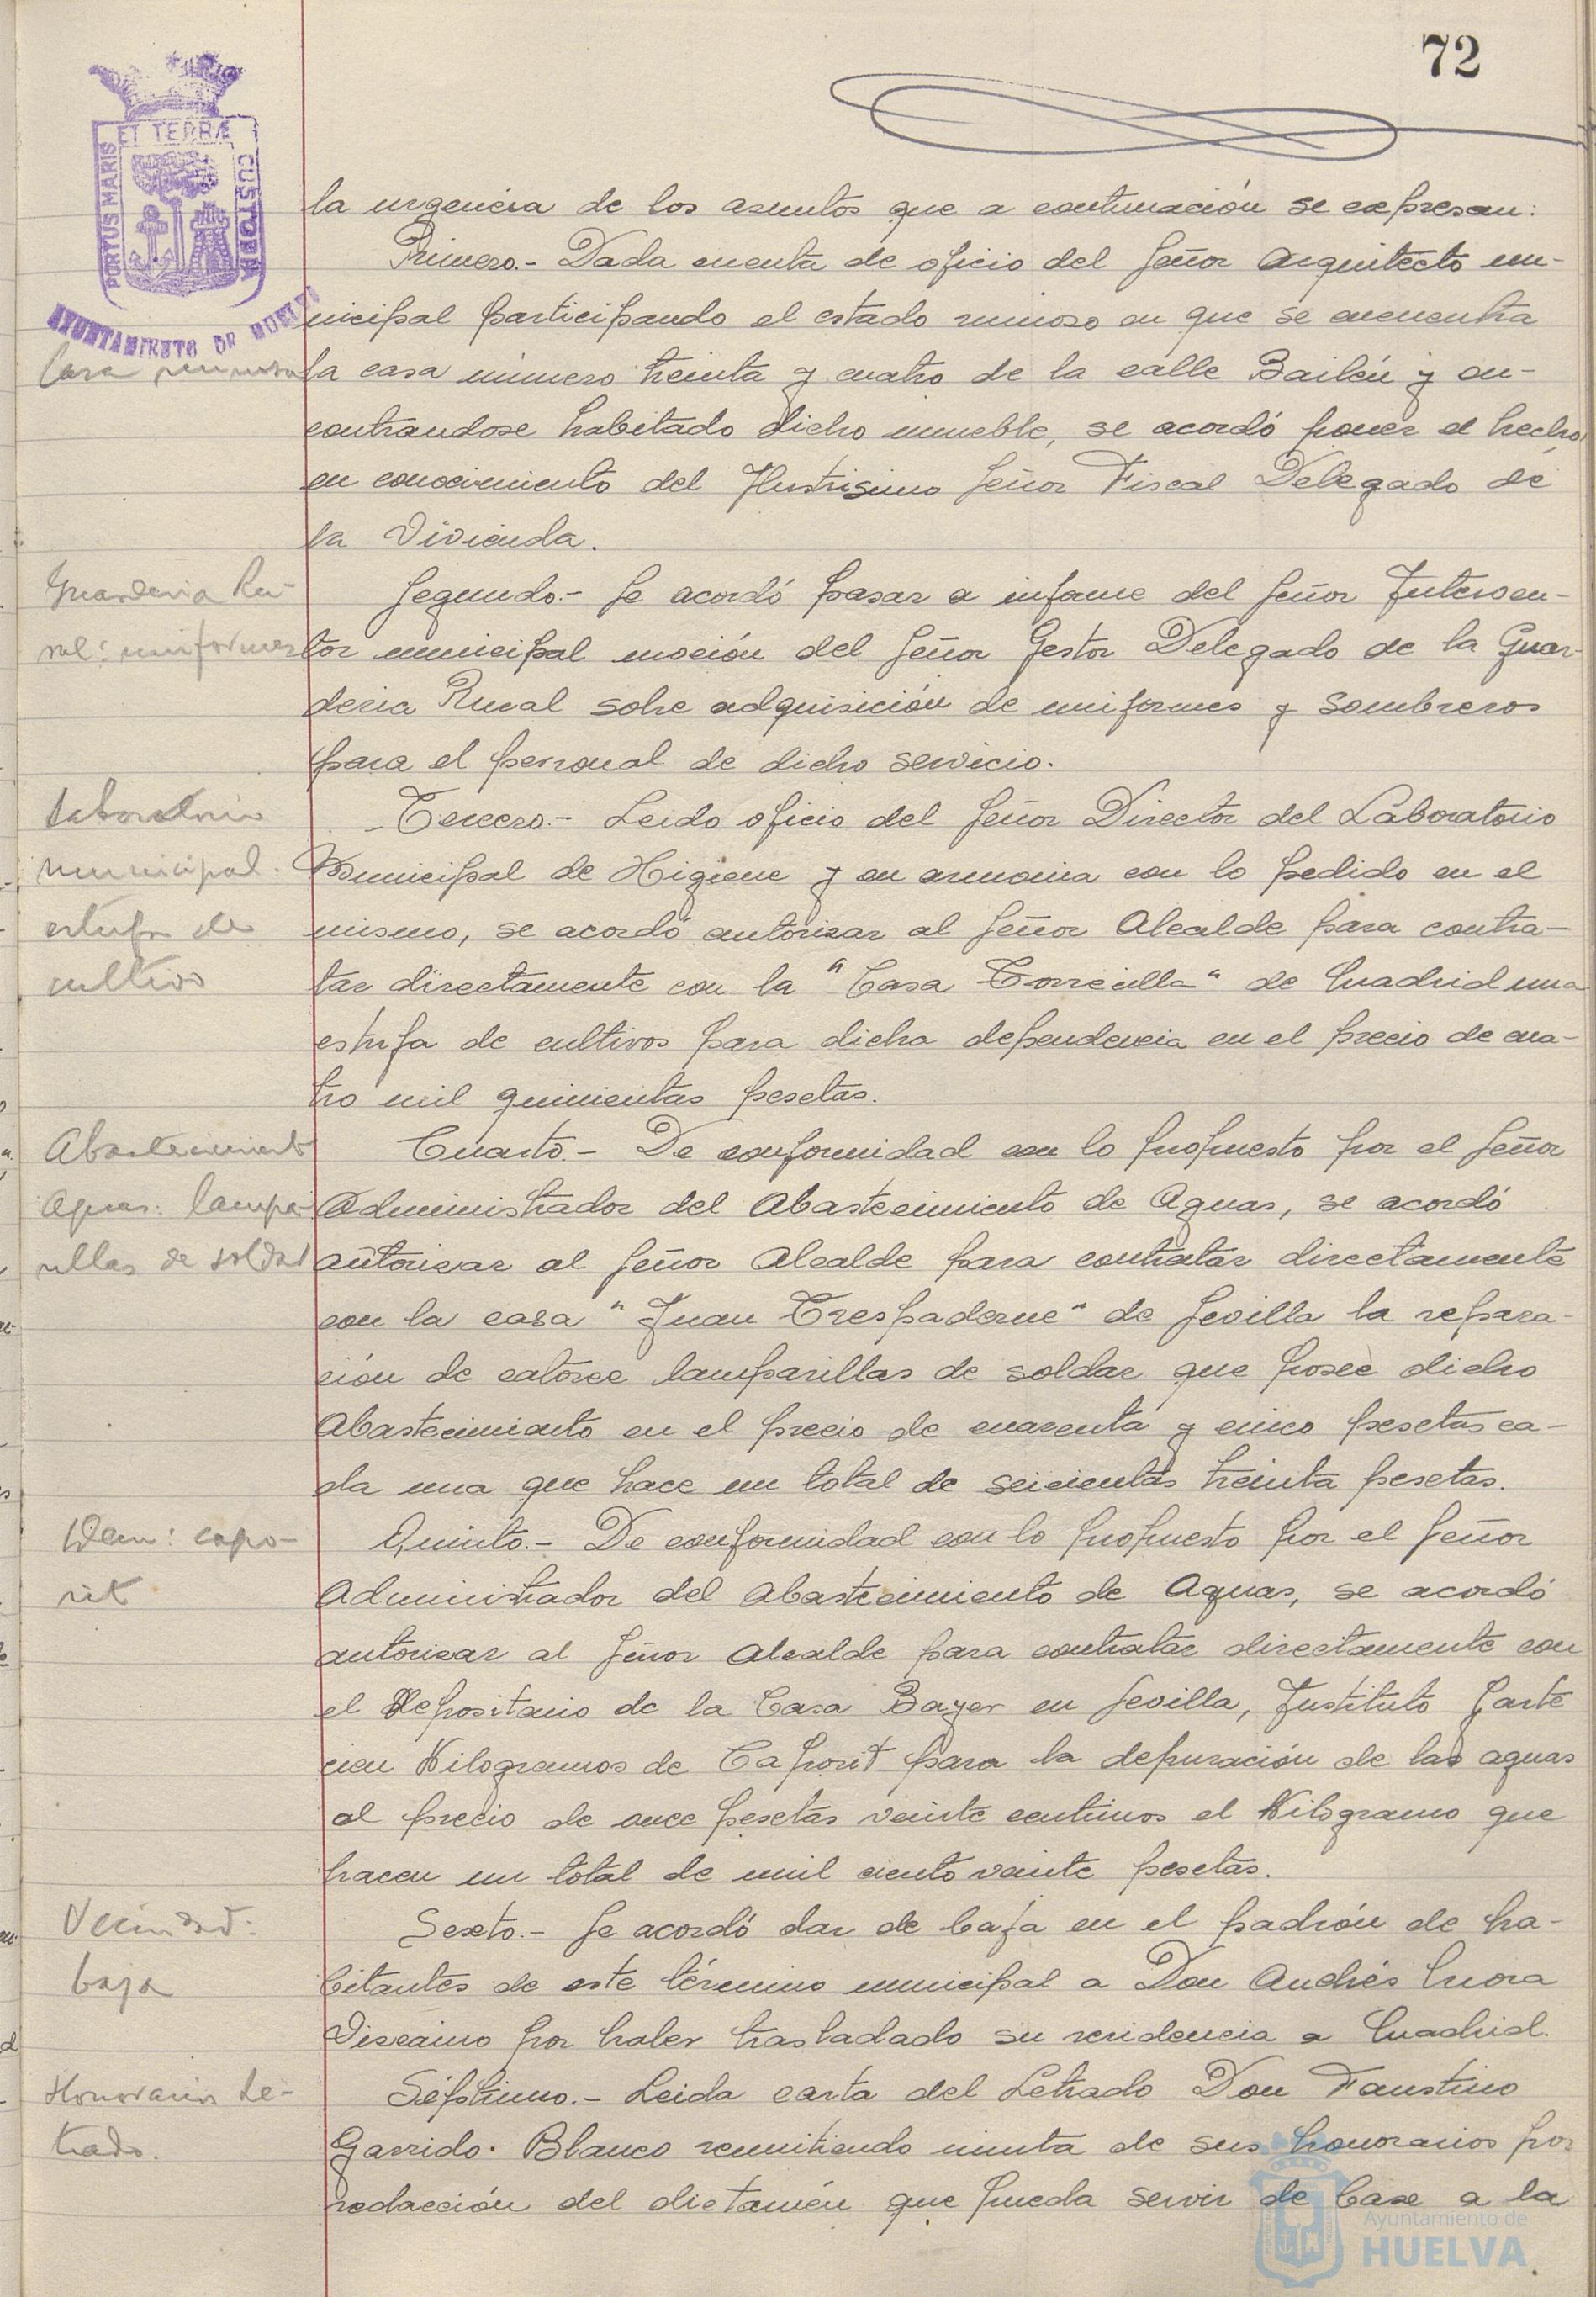 72
PORTUS MARIS ET TERRÆ CUSTODIA
AYUNTAMIENTO DE HUELVA
la urgencia de los asuntos que a continuación se expresan:
Primero.- Dada cuenta de oficio del Señor Arquitecto mu-
nicipal participando el estado ruinoso en que se encuentra
Casa ruinosa
la casa número treinta y cuatro de la calle Bailén y en-
contrandose habitado dicho inmueble, se acordó poner el hecho
en conocimiento del Ilustrisimo Señor Fiscal Delegado de
la Vivienda.
Guarderia Ru-
ral: uniformes
Segundo.- Se acordó pasar a informe del Señor Interven-
tor municipal moción del Señor Gestor Delegado de la Guar-
deria Rural sobre adquisición de uniformes y sombreros
para el personal de dicho servicio.
Laboratorio
municipal.
estufa de
cultivo
Tercero.- Leido oficio del Señor Director del Laboratorio
Municipal de Higiene y en armonia con lo pedido en el
mismo, se acordó autorizar al Señor Alcalde para contra-
tar directamente con la "Casa Torrecilla" de Madrid una
estufa de cultivos para dicha dependencia en el precio de cua-
tro mil quinientas pesetas.
Abastecimiento
Aguas: lampa-
rillas de soldar
Cuarto.- De conformidad con lo propuesto por el Señor
Administrador del Abastecimiento de Aguas, se acordó
autorizar al Señor Alcalde para contratar directamente
con la casa "Juan Trespaderne" de Sevilla la repara-
ción de catorce lamparillas de soldar que posee dicho
Abastecimiento en el precio de cuarenta y cinco pesetas ca-
da una que hace un total de seicientas treinta pesetas.
Idem: capo-
rit
Quinto.- De conformidad con lo propuesto por el Señor
Administrador del Abastecimiento de Aguas, se acordó
autorizar al Señor Alcalde para contratar directamente con
el Depositario de la Casa Bayer en Sevilla, Instituto
cien Kilogramos de Caporit para la depuración de las aguas
al precio de once pesetas veinte centimos el Kilogramo que
hacen un total de mil ciento veinte pesetas.
Vecindad:
baja
Sexto.- Se acordó dar de baja en el padrón de ha-
bitantes de este término municipal a Don Andrés Mora
Viscaino por haber trasladado su residencia a Madrid.
Honorarios Le-
trado.
Séptimo.- Leida carta del Letrado Don Faustino
Garrido Blanco remitiendo minuta de sus honorarios por
redacción del dictamén que pueda servir de base a la
Ayuntamiento de
HUELVA